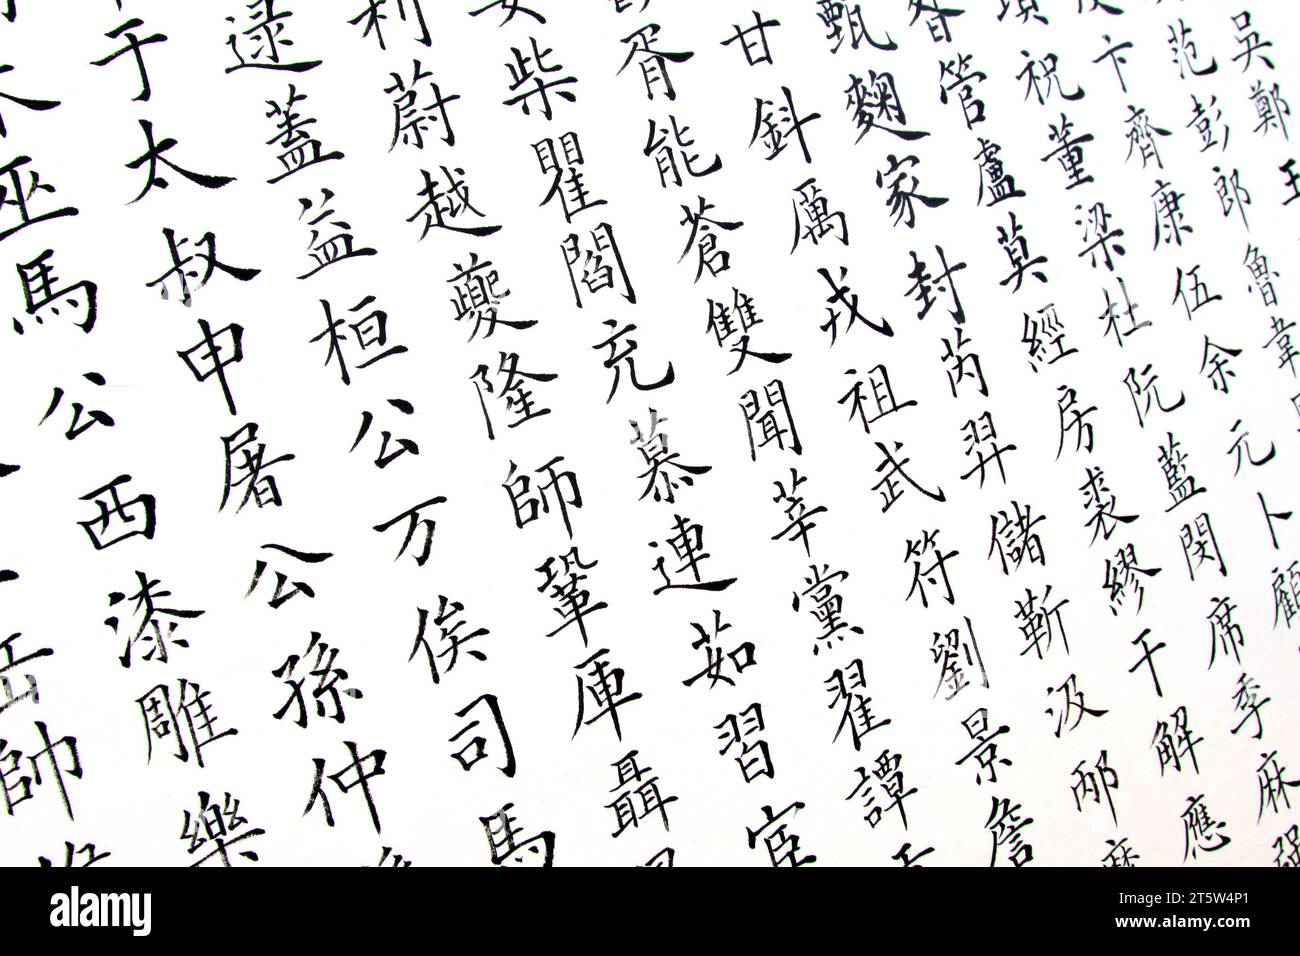 吳鄭王
魯韋
顧
范彭郎
伍余元卜
席季麻
卞齊康
阮藍閔
解應
祝董梁杜
經房裘繆干
管盧莫
儲靳汲邴
甄麴家封芮羿
劉景詹
甘鈄厲戎祖武符
胥能蒼雙聞莘黨翟譚
柴瞿閻充慕連茹習宦
利蔚越夔隆師鞏厙聶
逯蓋益桓公万俟司馬
于太叔申屠公孫仲
巫馬公西漆雕樂
帥
alamy
Image ID: 2T5W4P1
www.alamy.com